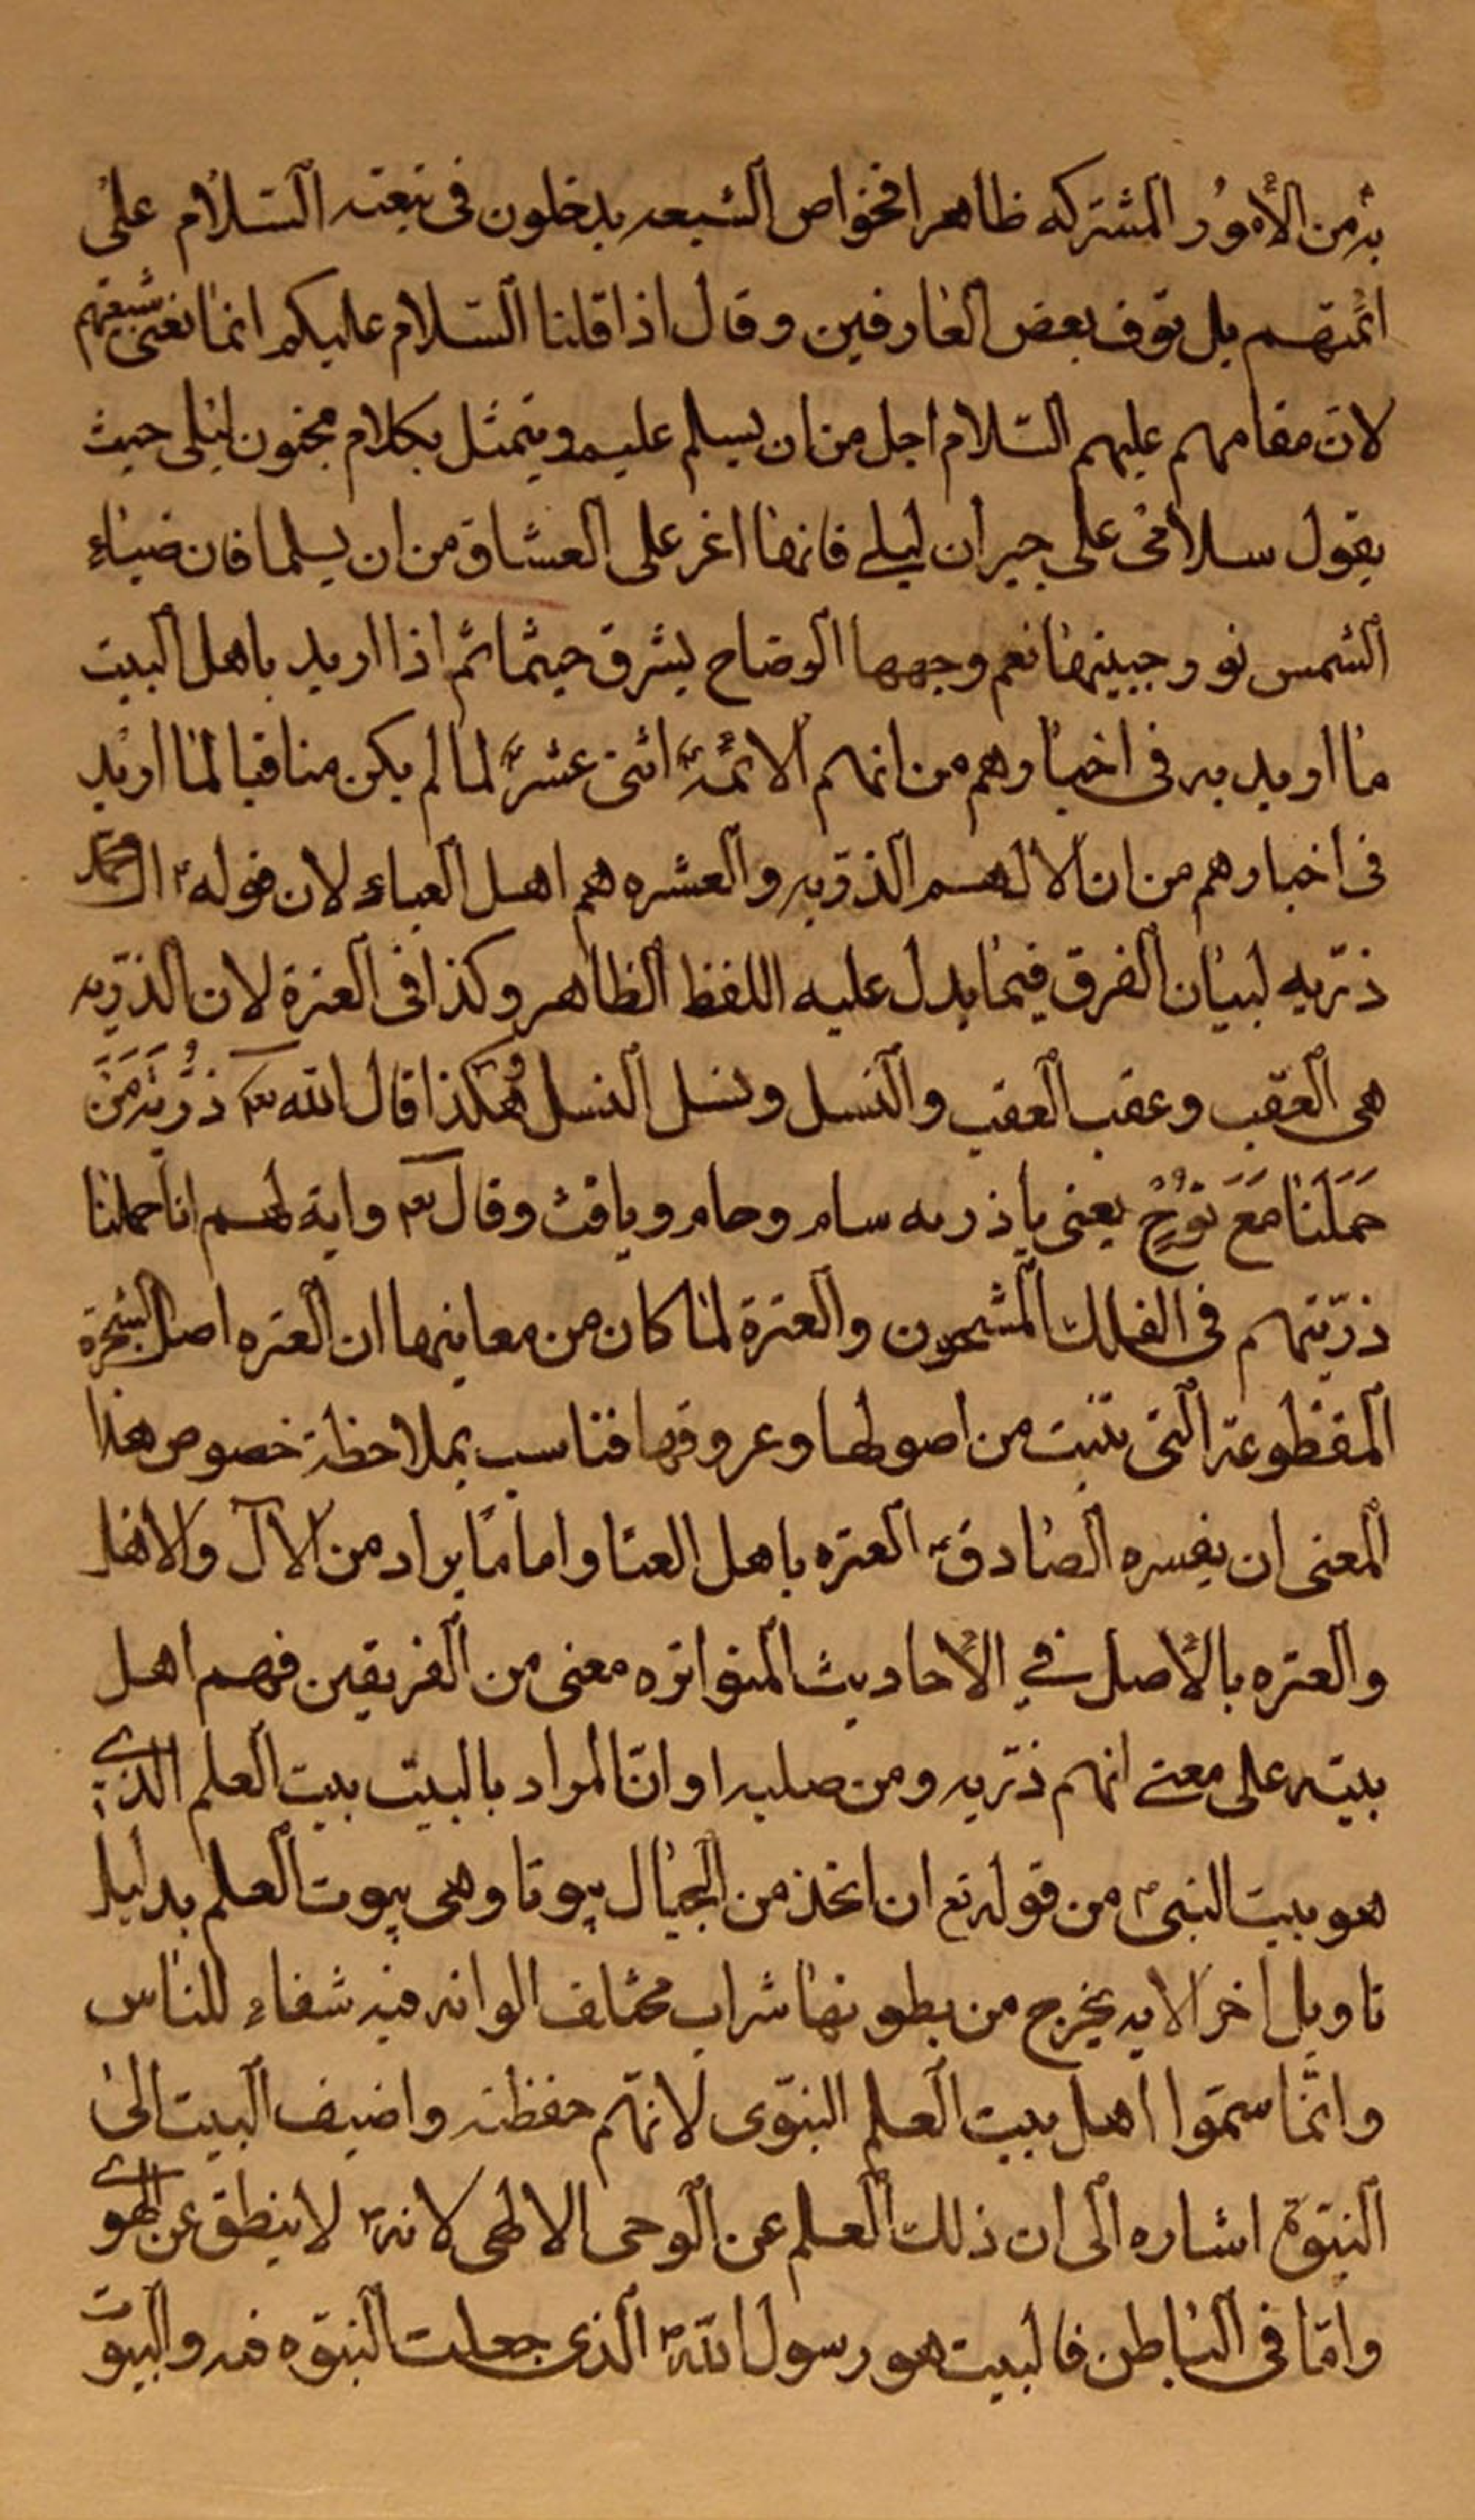 به من الأمور المشتركه ظاهرا فخواص الشيعه يدخلون فى تبعته السّلام على
ائمتهم بل توقف بعض العارفين وقال اذا قلنا السّلام عليكم انما نعنى شيعتهم
لان مقامهم عليهم السّلام اجل من ان يسلم عليه ويتمثل بكلام مجنون ليلى حيث
يقول سلامى على جيران ليلى فانها اغر على العشاق من ان يسلما فان ضياء
الشمس نور جبينها نعم وجهها الوضاح يشرق حيثما ثم اذا اريد باهل البيت
ما اريد به فى اخبارهم من انهم الائمّة اثنى عشر لما لم يكن منافيا لما اريد
فى اخبارهم من ان الالهم الذريه والعشره هم اهل العباء لان قوله ال محمد
ذرّيه لبيان الفرق فيما يدل عليه اللفظ الظاهر وكذا فى العترة لان الذرّيه
هى العقب وعقب العقب والنسل ونسل النسل وهكذا قال الله تع ذُرِّيَّةَ مَنْ
حَمَلْنَا مَعَ نُوْحٍ يعنى ياذريه سام وحام ويافث وقال تع واية لهم انا حملنا
ذرّيتهم فى الفلك المشحون والعترة لما كان من معانيها ان العتره اصل الشجرة
المقطوعة التى تنبت من اصولها وعروقها فناسب بملاحظة خصوص هذا
المعنى ان يفسره الصّادق العتره باهل العبا واما ما يراد من الال والاهل
والعتره بالأصل في الأحاديث المتواتره معنى من الفريقين فهم اهل
بيته على معنى انهم ذرّيه ومن صلبه او انّ المراد بالبيت بيت العلم الذى
هو بيت النبى من قوله تع ان اتخذ من الجبال بيوتا وهى بيوت العلم بدليل
تاويل اخر الايه يخرج من بطونها شراب مختلف الوانه فيه شفاء للناس
وانما سمّوا اهل بيت العلم النبوّى لانهم حفظته واضيف البيت الى
النبوّة اشاره الى ان ذلك العلم عن الوحى الالهى لانه لا ينطق عن الهوى
وامّا فى الباطن فالبيت هو رسول الله الذى جعلت النبوّه فيه والبيوت